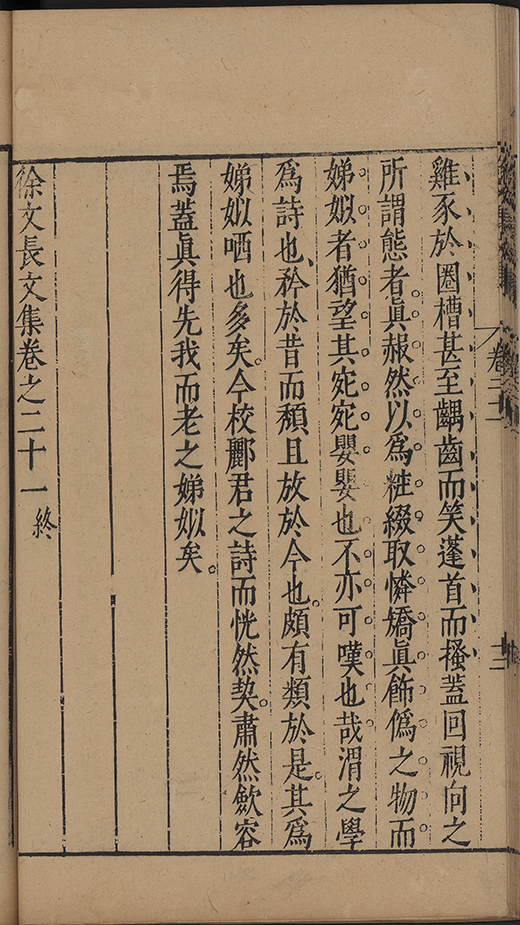 雞豕於圈槽甚至齵齒而笑蓬首而搔蓋回視向之
所謂態者真赧然以爲粧綴取憐嬌真飾僞之物而
娣姒者猶望其宛宛嬰嬰也不亦可嘆也哉渭之學
爲詩也矜於昔而頹且放於今也頗有類於是其爲
娣姒哂也多矣今校酈君之詩而恍然契肅然斂容
焉蓋眞得先我而老之娣姒矣
徐文長文集卷之二十一終